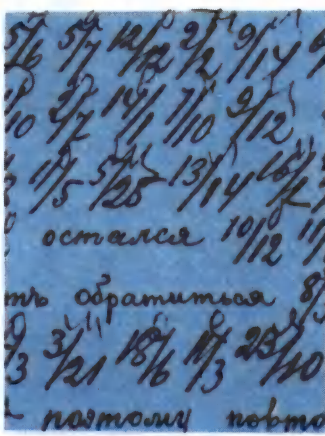 5/6 5/7 12/12 2/2 9/14
/10 2/7 14/1 7/10 9/12
11/5 5/25 13/14 16/2
остался 10/12
ть обратиться 8/
/3 3/21 18/6 11/3 23/10
поэтому повто